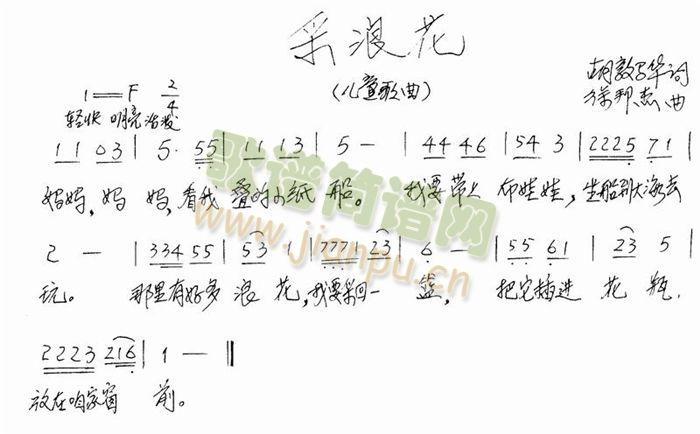 采浪花
(儿童歌曲)
1=F 2/4
胡敦华词
徐邦杰曲
轻快 明亮 活泼
1 1 0 3 | 5· 5 5 | 1 1 1 3 | 5 - | 4 4 4 6 | 5 4 3 | 2 2 2 5 7 1 |
妈妈,妈 妈,看我 叠的小纸 船。 我要带上 布娃娃,坐船到大海去
2 - | 3 3 4 5 5 | 5 3 1 | 7 7 7 1 2 3 | 6 - | 5 5 6 1 | 2 3 5 |
玩。 那里有好多 浪 花,我要采回一 篮, 把它插进 花 瓶,
2 2 2 3 2 1 6 | 1 - ‖
放在咱家窗 前。
歌谱简谱网
www.jianpu.cn